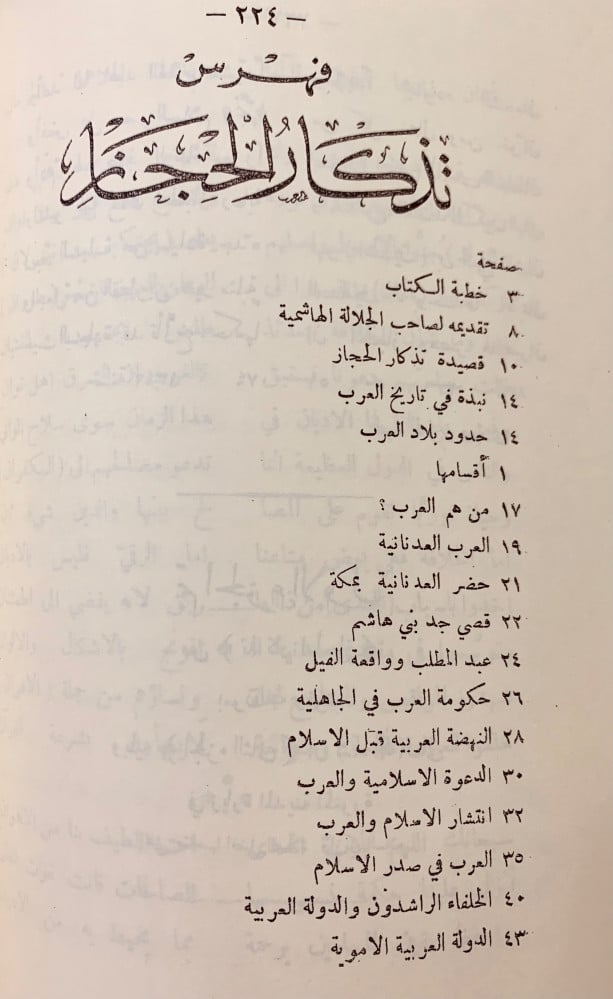 — ٢٢٤ —
فهرس
تذكار الحجاز
صفحة
٣ خطبة الكتاب
٨ تقديمه لصاحب الجلالة الهاشمية
١٠ قصيدة تذكار الحجاز
١٤ نبذة في تاريخ العرب
١٤ حدود بلاد العرب
١ أقسامها
١٧ من هم العرب ؟
١٩ العرب العدنانية
٢١ حضر العدنانية بمكة
٢٢ قصي جد بني هاشم
٢٤ عبد المطلب وواقعة الفيل
٢٦ حكومة العرب في الجاهلية
٢٨ النهضة العربية قبل الاسلام
٣٠ الدعوة الاسلامية والعرب
٣٢ انتشار الاسلام والعرب
٣٥ العرب في صدر الاسلام
٤٠ الخلفاء الراشدون والدولة العربية
٤٣ الدولة العربية الاموية